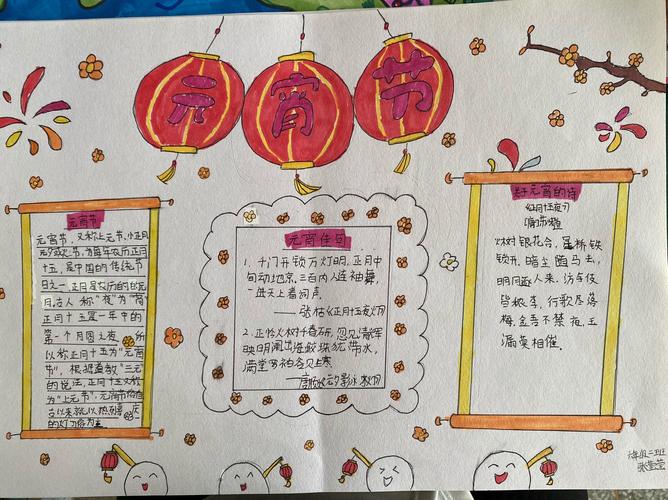 元宵节
元宵节
元宵节，又称上元节、小正月、
元夕或灯节，为每年农历正月
十五，是中国的传统节
日之一。正月是农历的元
月，古人称"夜"为"宵"
正月十五是一年中的
第一个月圆之夜，所
以称正月十五为"元宵
节"，根据道教"三元"
的说法，正月十五又称
为"上元节"，元宵节自
古以来就以热烈喜庆
的灯习俗为主
元宵佳句
1、千门开锁万灯明，正月中
旬动地京，三百内人连袖舞，
一进天上着词声
——张祜《正月十五夜灯》
2、
映
满堂
关于元宵的诗
《正月十五夜》
火树银花合，星桥铁
锁开，暗尘随马去，
明月逐人来，游伎
皆秾李，行歌尽落
梅，金吾不禁夜，玉
漏莫相催。
六年级二班